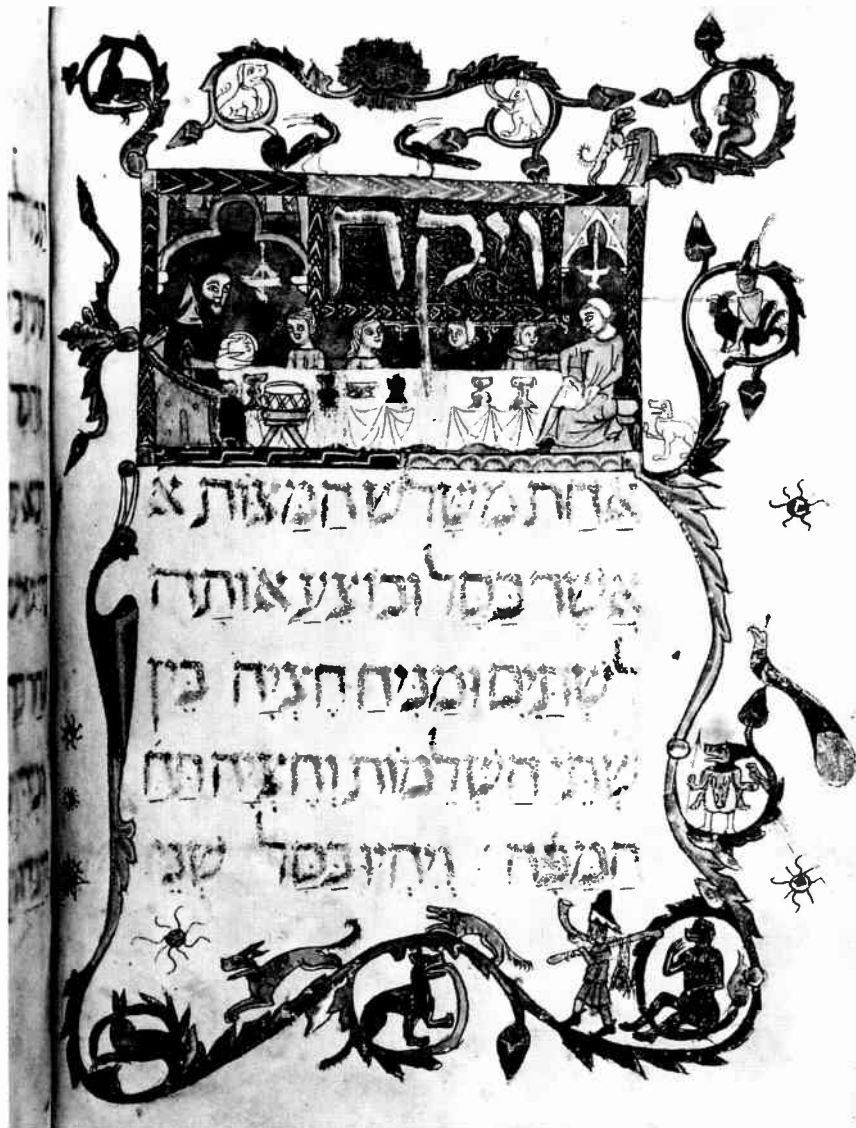 ויקח
אחת משלש המצות א
אשר בסל ובוצע אותה
לשתים ומניח חציה בין
שתי השלמות וחציה
המפה ויהיו בסל שני